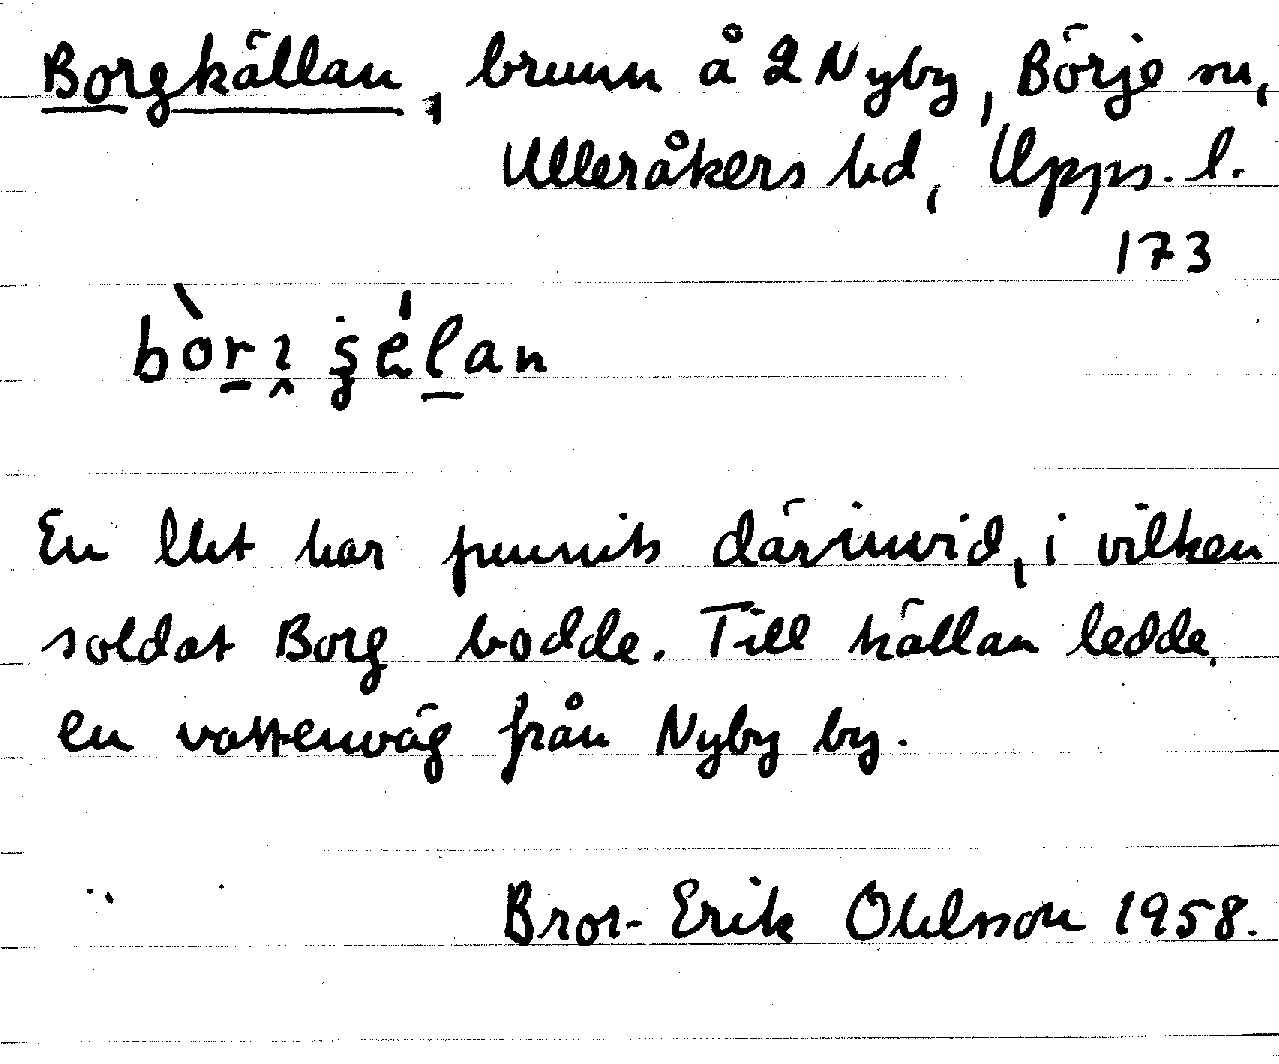 Borgkällan, brunn å 2 Nyby, Börje sn,
Ulleråkers hd, Upps. l.
173
En Utet har funnits därinvid, i vilken
soldat Borg bodde. Till källan ledde
en vattenväg från Nyby by.
Bror-Erik Ohlsson 1958.